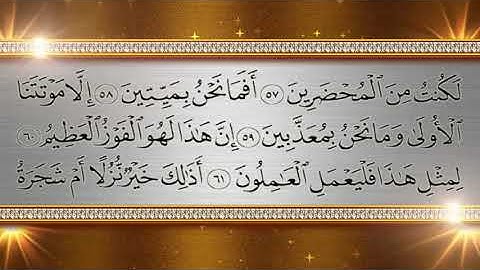 لَكُنتُ مِنَ ٱلْمُحْضَرِينَ ٥٧ أَفَمَا نَحْنُ بِمَيِّتِينَ ٥٨ إِلَّا مَوْتَتَنَا
ٱلْأُولَىٰ وَمَا نَحْنُ بِمُعَذَّبِينَ ٥٩ إِنَّ هَٰذَا لَهُوَ ٱلْفَوْزُ ٱلْعَظِيمُ ٦٠
لِمِثْلِ هَٰذَا فَلْيَعْمَلِ ٱلْعَٰمِلُونَ ٦١ أَذَٰلِكَ خَيْرٌ نُّزُلًا أَمْ شَجَرَةُ